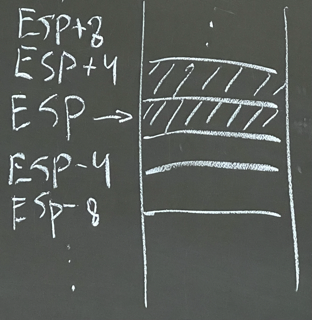 ESP+8
ESP+4
ESP →
ESP-4
ESP-8